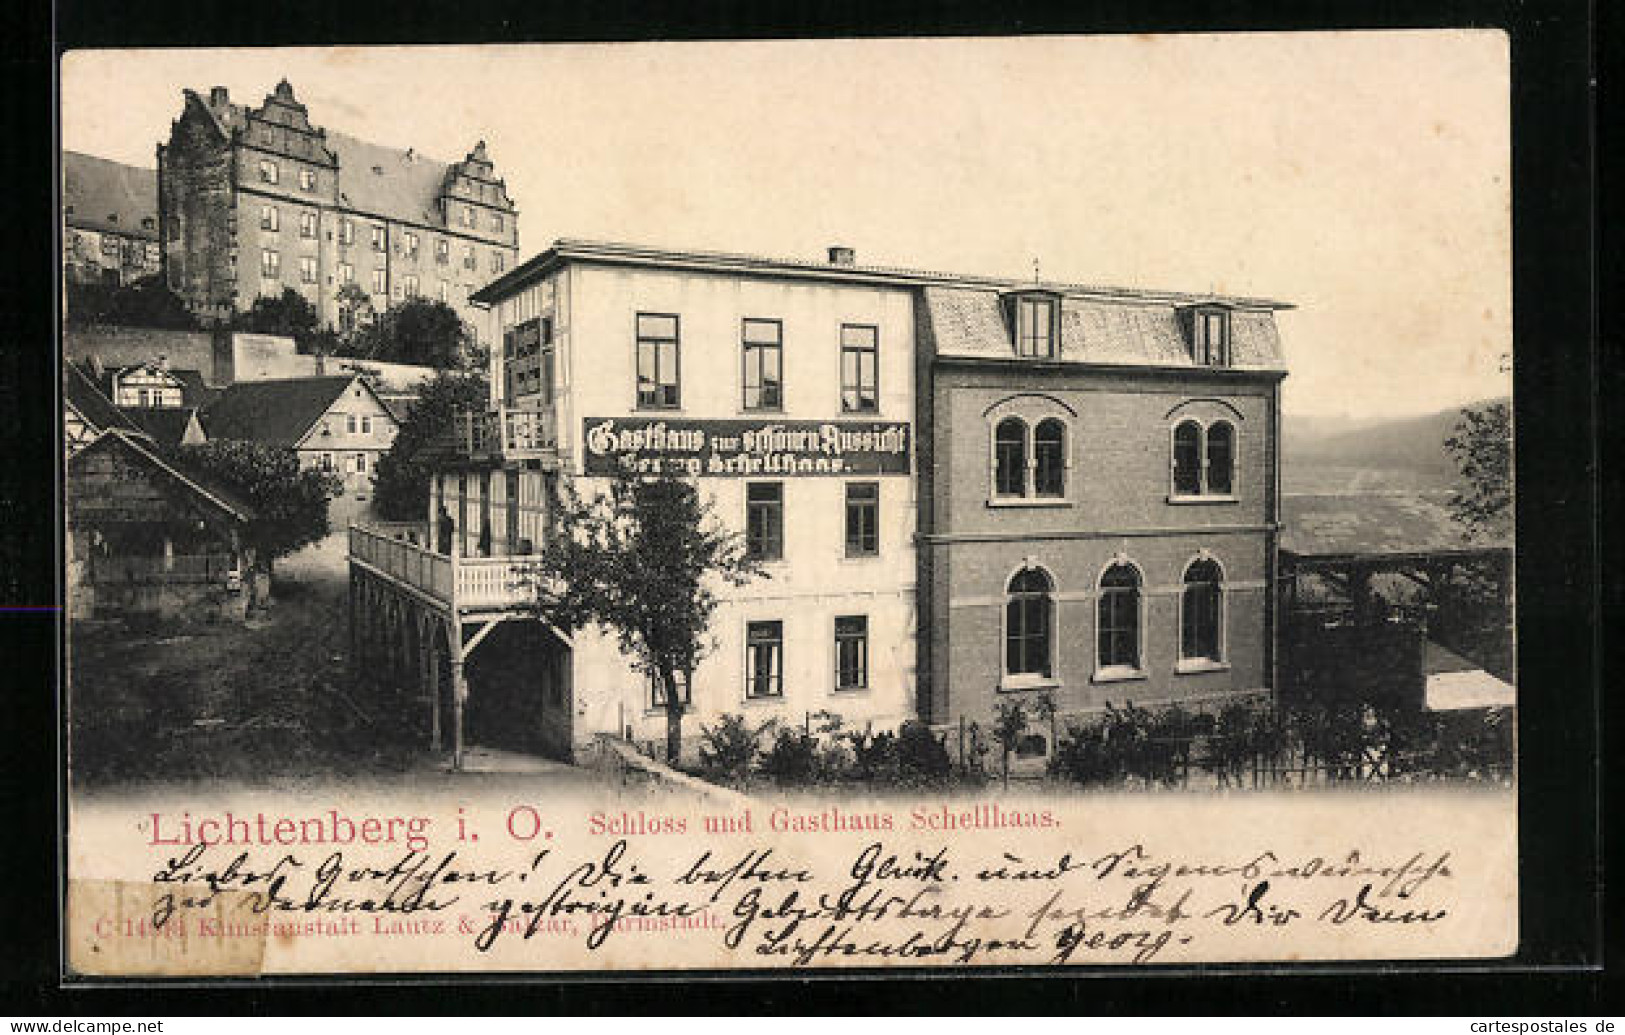 Gasthaus zur schönen Aussicht
Georg Schellhaas.
Lichtenberg i. O. Schloss und Gasthaus Schellhaas.
Liebes Gretchen! Die besten Glück- und Segenswünsche
zu Deinem gestrigen Geburtstage sendet Dir Dein
Lichtenberger Georg.
Kunstanstalt Lautz & Balzar, Darmstadt.
cartespostales de